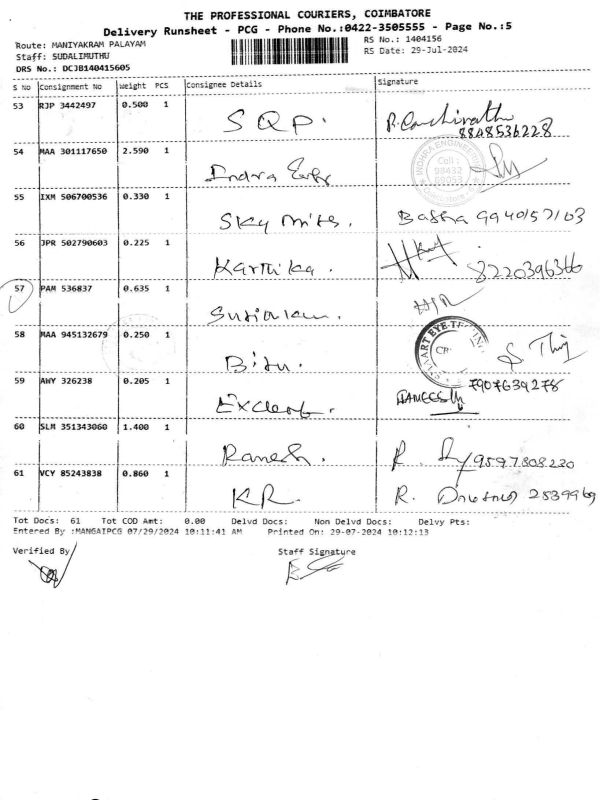 THE PROFESSIONAL COURIERS, COIMBATORE
Delivery Runsheet - PCG - Phone No.:0422-3505555 - Page No.:5
Route: MANIYAKRAM PALAYAM RS No.: 1404156
Staff: SUDALIMUTHU RS Date: 29-Jul-2024
DRS No.: DCJB140415605
S No Consignment No Weight PCS Consignee Details Signature
53 RJP 3442497 0.500 1
SQP. 8848536228
54 MAA 301117650 2.590 1
INDHRA ENGINEERING
Cell :
98432
Indra
55 IXM 506700536 0.330 1
Sky 9940157103
56 JPR 502790603 0.225 1
Karthika. 8220396366
57 PAM 536837 0.635 1
58 MAA 945132679 0.250 1
Bitu.
59 AWY 326238 0.205 1
7907639278
60 SLM 351343060 1.400 1
Ranesh. R. 9597308230
61 VCY 85243838 0.860 1
KR. R. 2539969
Tot Docs: 61 Tot COD Amt: 0.00 Delvd Docs: Non Delvd Docs: Delvy Pts:
Entered By :MANGAIPCG 07/29/2024 10:11:41 AM Printed On: 29-07-2024 10:12:13
Verified By Staff Signature